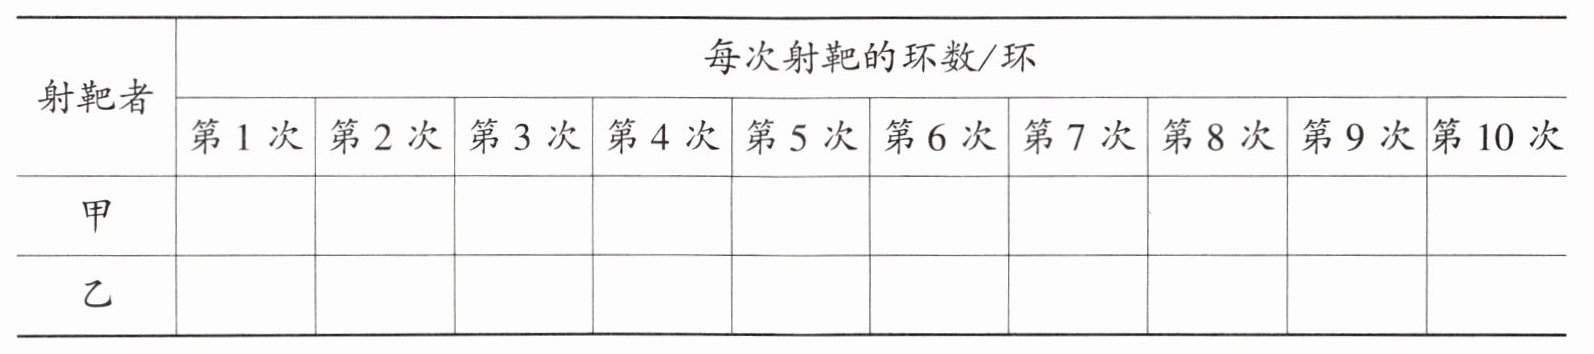 射靶者
每次射靶的环数/环
第 1 次 第 2 次 第 3 次 第 4 次 第 5 次 第 6 次 第 7 次 第 8 次 第 9 次 第 10 次
甲
乙